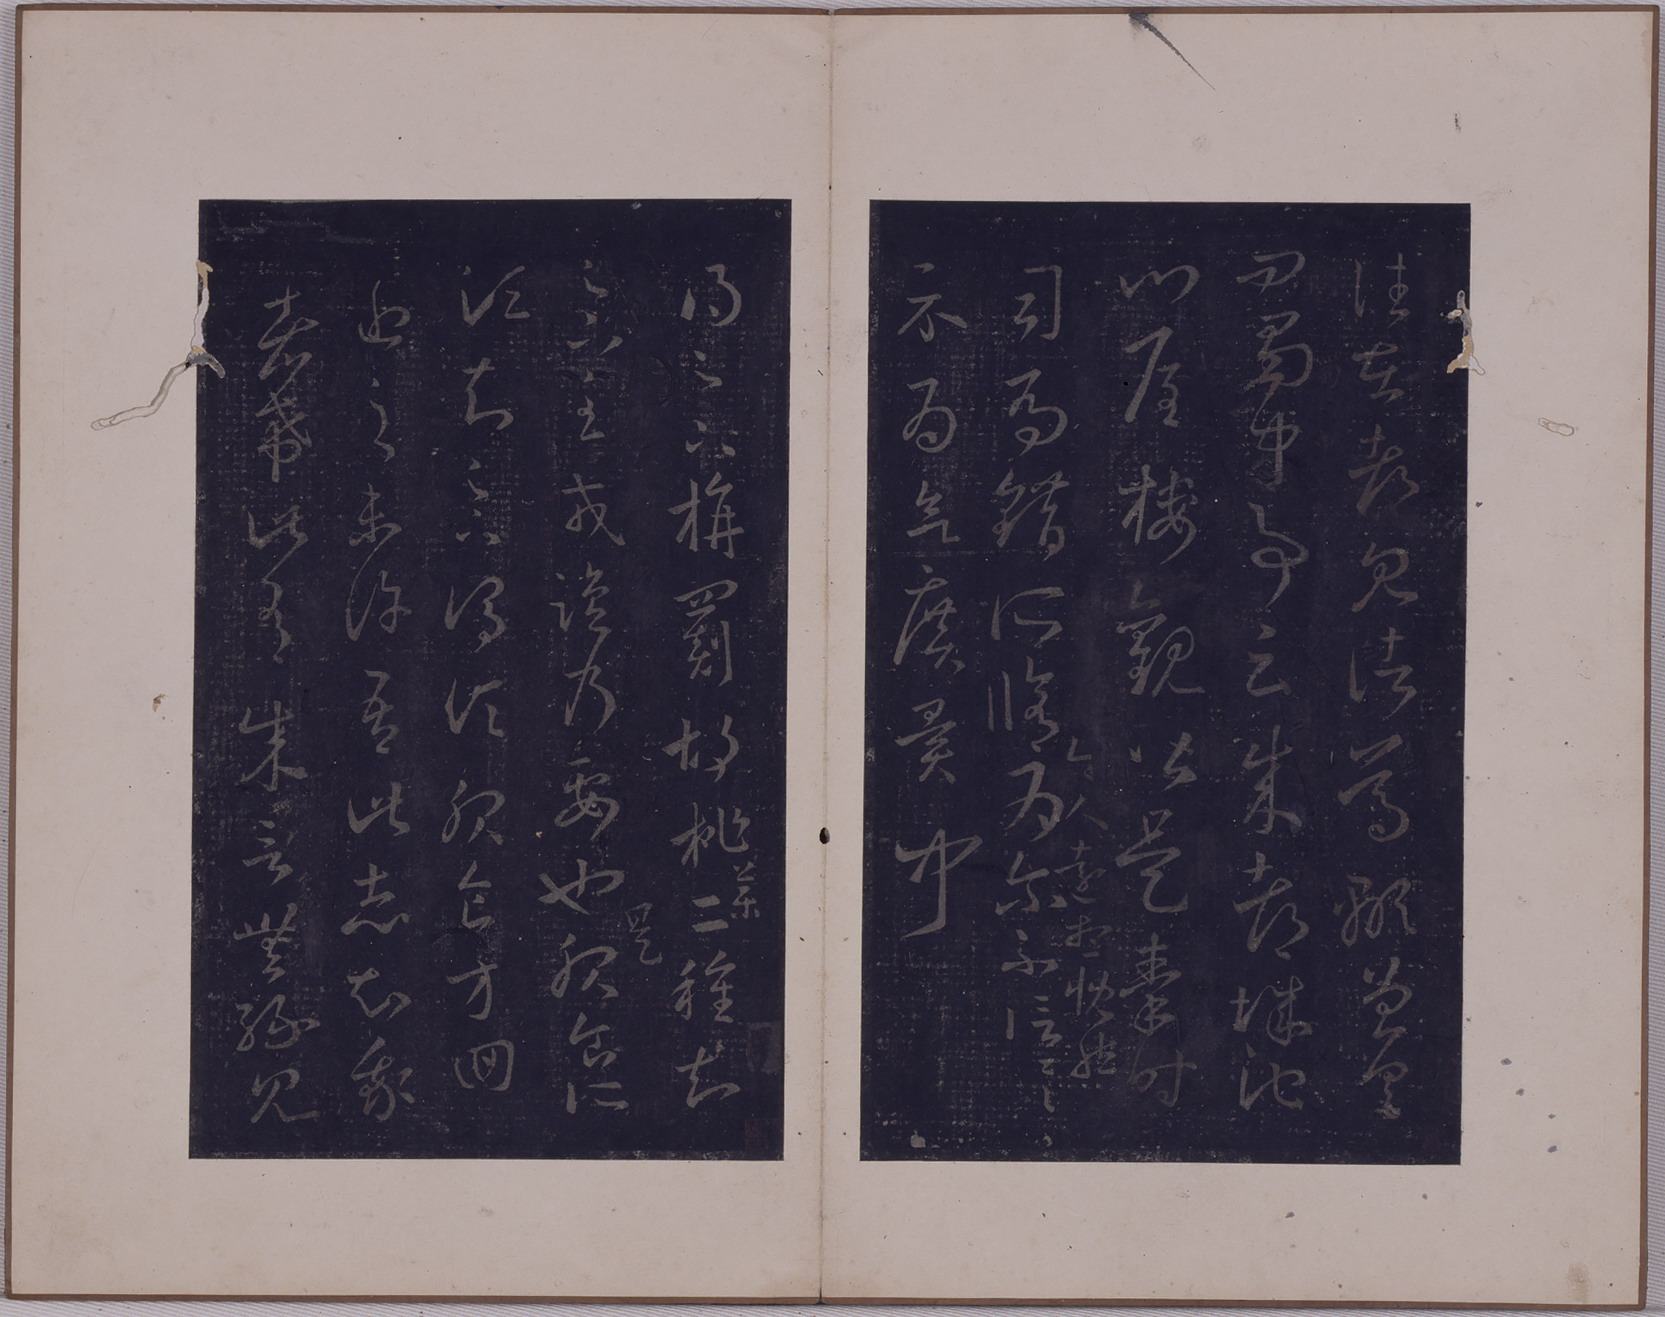 往在都見諸葛顒曾具
問蜀中事云成都城池
門屋樓觀皆是秦時
司馬錯所修令人遠想慨然為爾不信一一
示為欲廣異聞
得足下旃罽胡桃藥二種知
足下至戎鹽乃要也是服食所
須知足下謂須服食方回
近之未許吾此志知我
者希此有成言無緣見